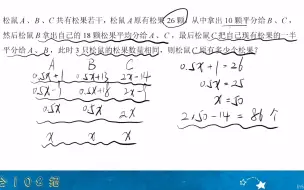 松鼠A、B、C共有松果若干，松鼠A原有松果26颗，从中拿出10颗平分给B、C，
然后松鼠B拿出自己的18颗松果平均分给A、C，最后松鼠C把自己现有松果的一半
平分给A、B，此时3只松鼠的松果数量相同，则松鼠C原有多少个松果？
A B C
0.5x+1 0.5x+13 2x-14
0.5x-9 0.5x+18 2x-9
0.5x 0.5x 2x
x x x
0.5x+1=26
0.5x=25
x=50
2×50-14=86个